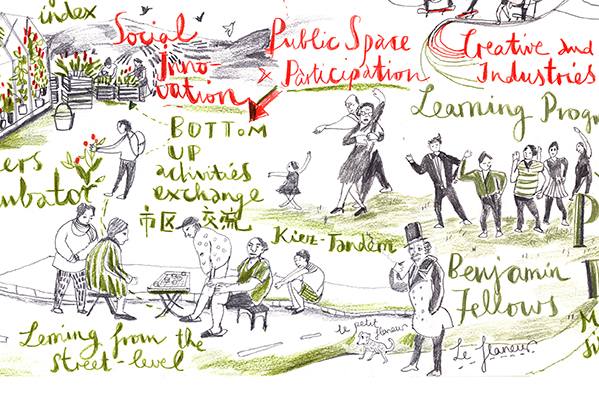 index
Social
Inno-
vation
Public Space
& Participation
Creative and
Industries
Learning Prog
BOTTOM
UP
activities
exchange
市区 交流
ers
ubator
Kiez-Tandem
Benjamin
Fellows
le petit
flaneur
Le flaneur
Lerning from the
street-level